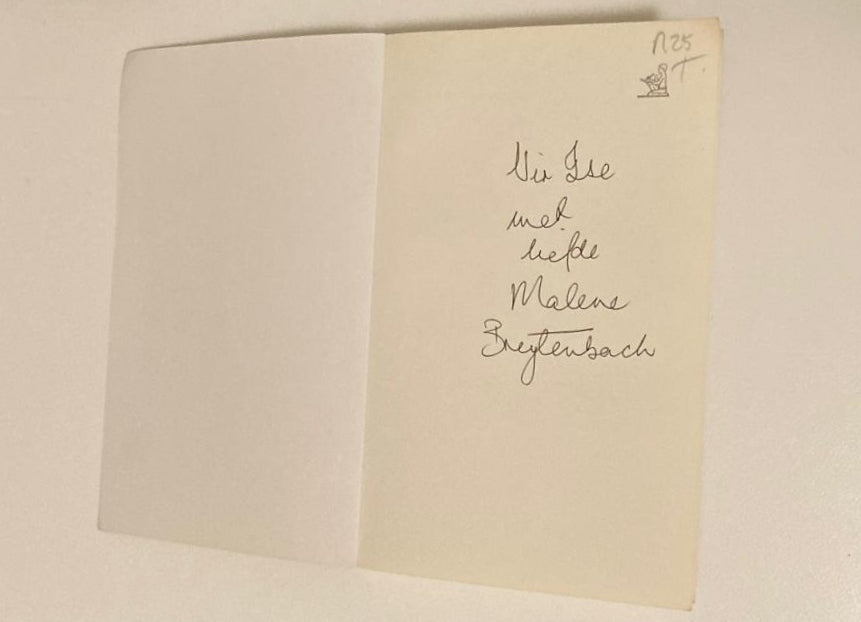 R25
T.
Vir Ise
met
liefde
Malene
Breytenbach